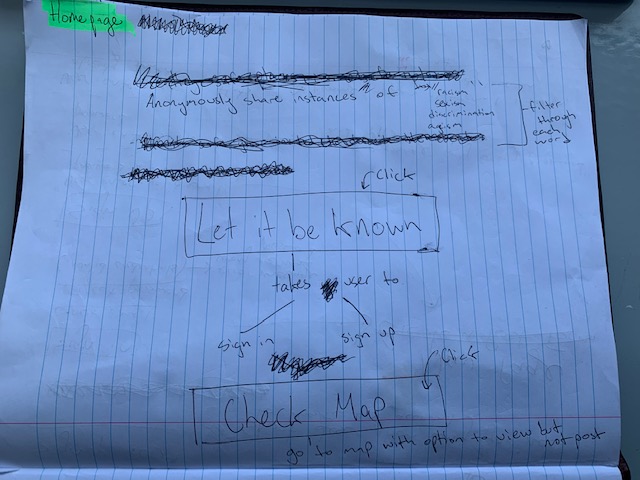 Homepage
Anonymously share instances of
racism
sexism
discrimination
ageism
filter
through
each
word
Click
Let it be known
takes user to
sign in sign up
Click
Check Map
go to map with option to view but
not post